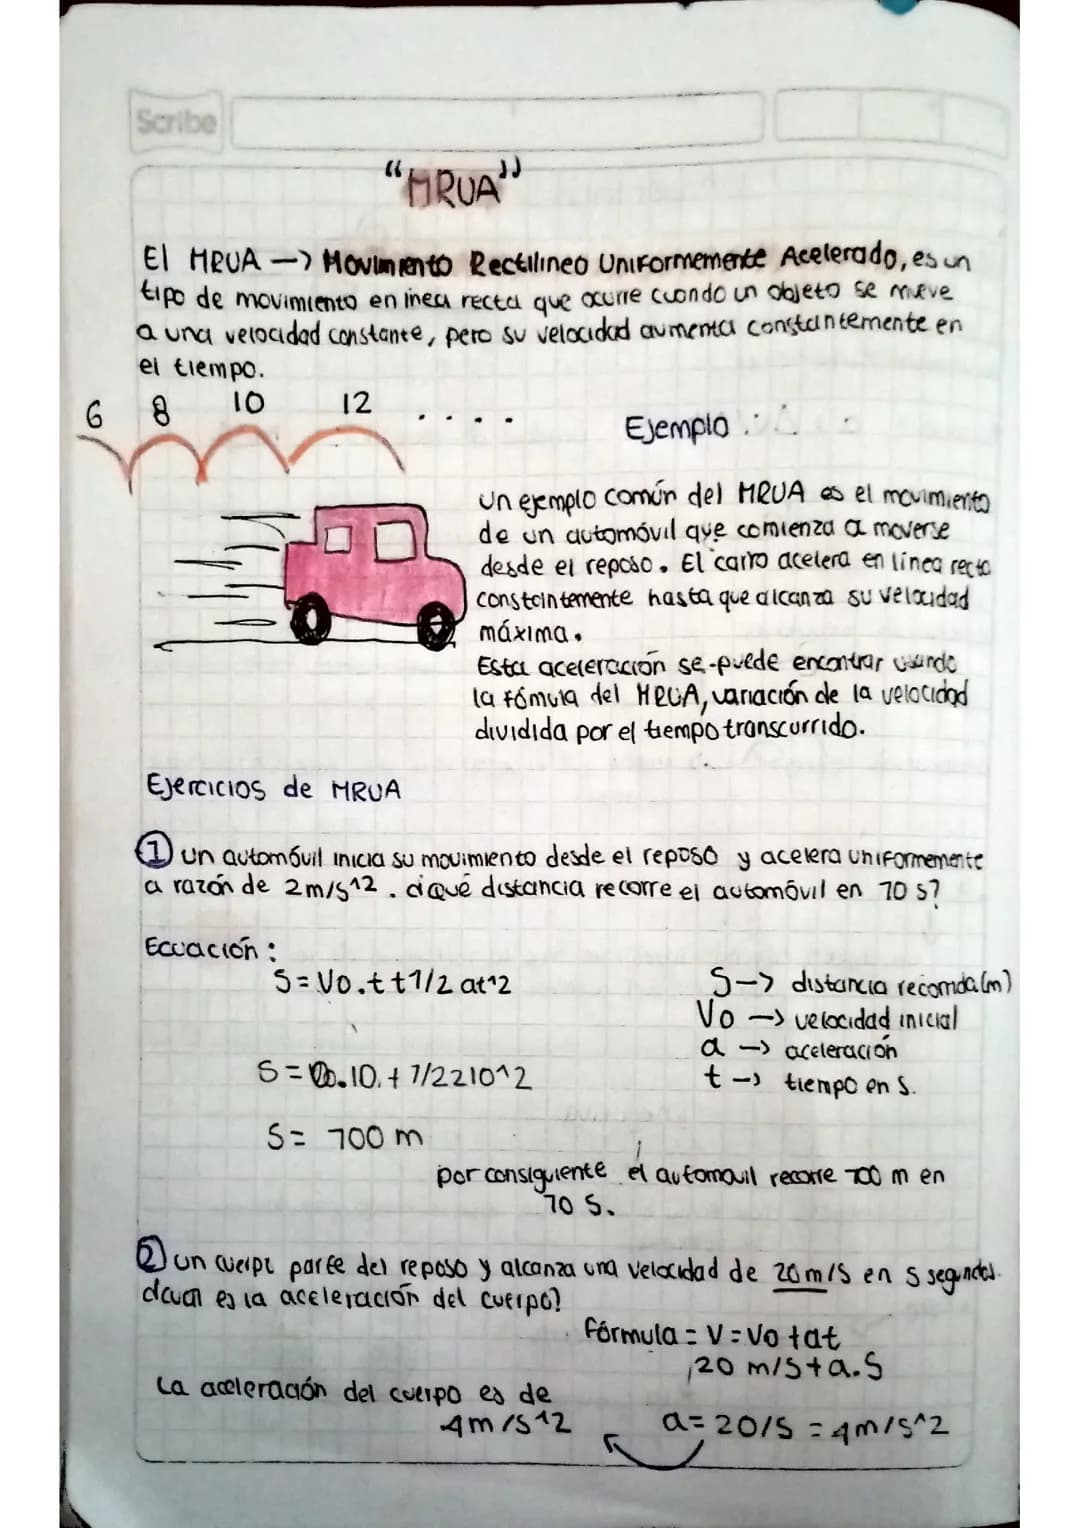 Scribe
"MRUA"
El MRUA → Movimiento Rectilineo Uniformemente Acelerado, es un
tipo de movimiento en inea recta que ocurre cuando un objeto se mueve
a una velocidad constante, pero su velocidad aumenta constantemente en
el tiempo.
6 8 10 12 . . . .
Ejemplo
un ejemplo común del MRUA es el movimiento
de un automóvil que comienza a moverse
desde el reposo. El carro acelera en línea recta
constantemente hasta que alcanza su velocidad
máxima.
Esta aceleración se puede encontrar usando
la fómula del MRUA, variación de la velocidad
dividida por el tiempo transcurrido.
Ejercicios de MRUA
① un automóvil inicia su movimiento desde el reposo y acelera uniformemente
a razón de 2m/s^2. ¿qué distancia recorre el automóvil en 10 s?
Ecuación:
S=Vo.t+1/2 at^2
S→ distancia recorrida(m)
Vo → velocidad inicial
a → aceleración
t → tiempo en s.
S=0.10.+1/2210^2
S= 100 m
por consiguiente el automovil recorre 100 m en
10 S.
② un cuerpo parte del reposo y alcanza una velocidad de 20m/s en 5 segundos.
¿cual es la aceleración del cuerpo?
Fórmula = V=Vo+at
20 m/s+a.5
La aceleración del cuerpo es de
4m/s^2
a=20/5 =4m/s^2